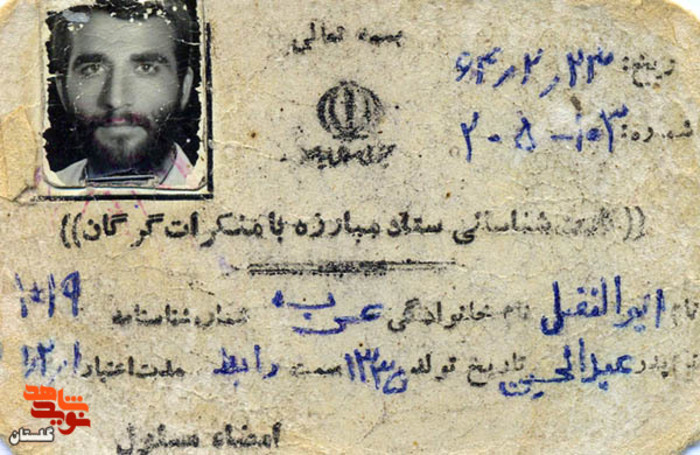 بسمه تعالی
تاریخ: ۶۴/۲/۲۳
شماره: ۱۰۳-۲۰۵
((کارت شناسائی ستاد مبارزه با منکرات گرگان))
نام ابوالفضل نام خانوادگی عرب شماره شناسنامه ۱۰۱۹
نام پدر عبدالحسین تاریخ تولد سمت رابط مدت اعتبار
امضاء مسئول
نوید شاهد
گلستان